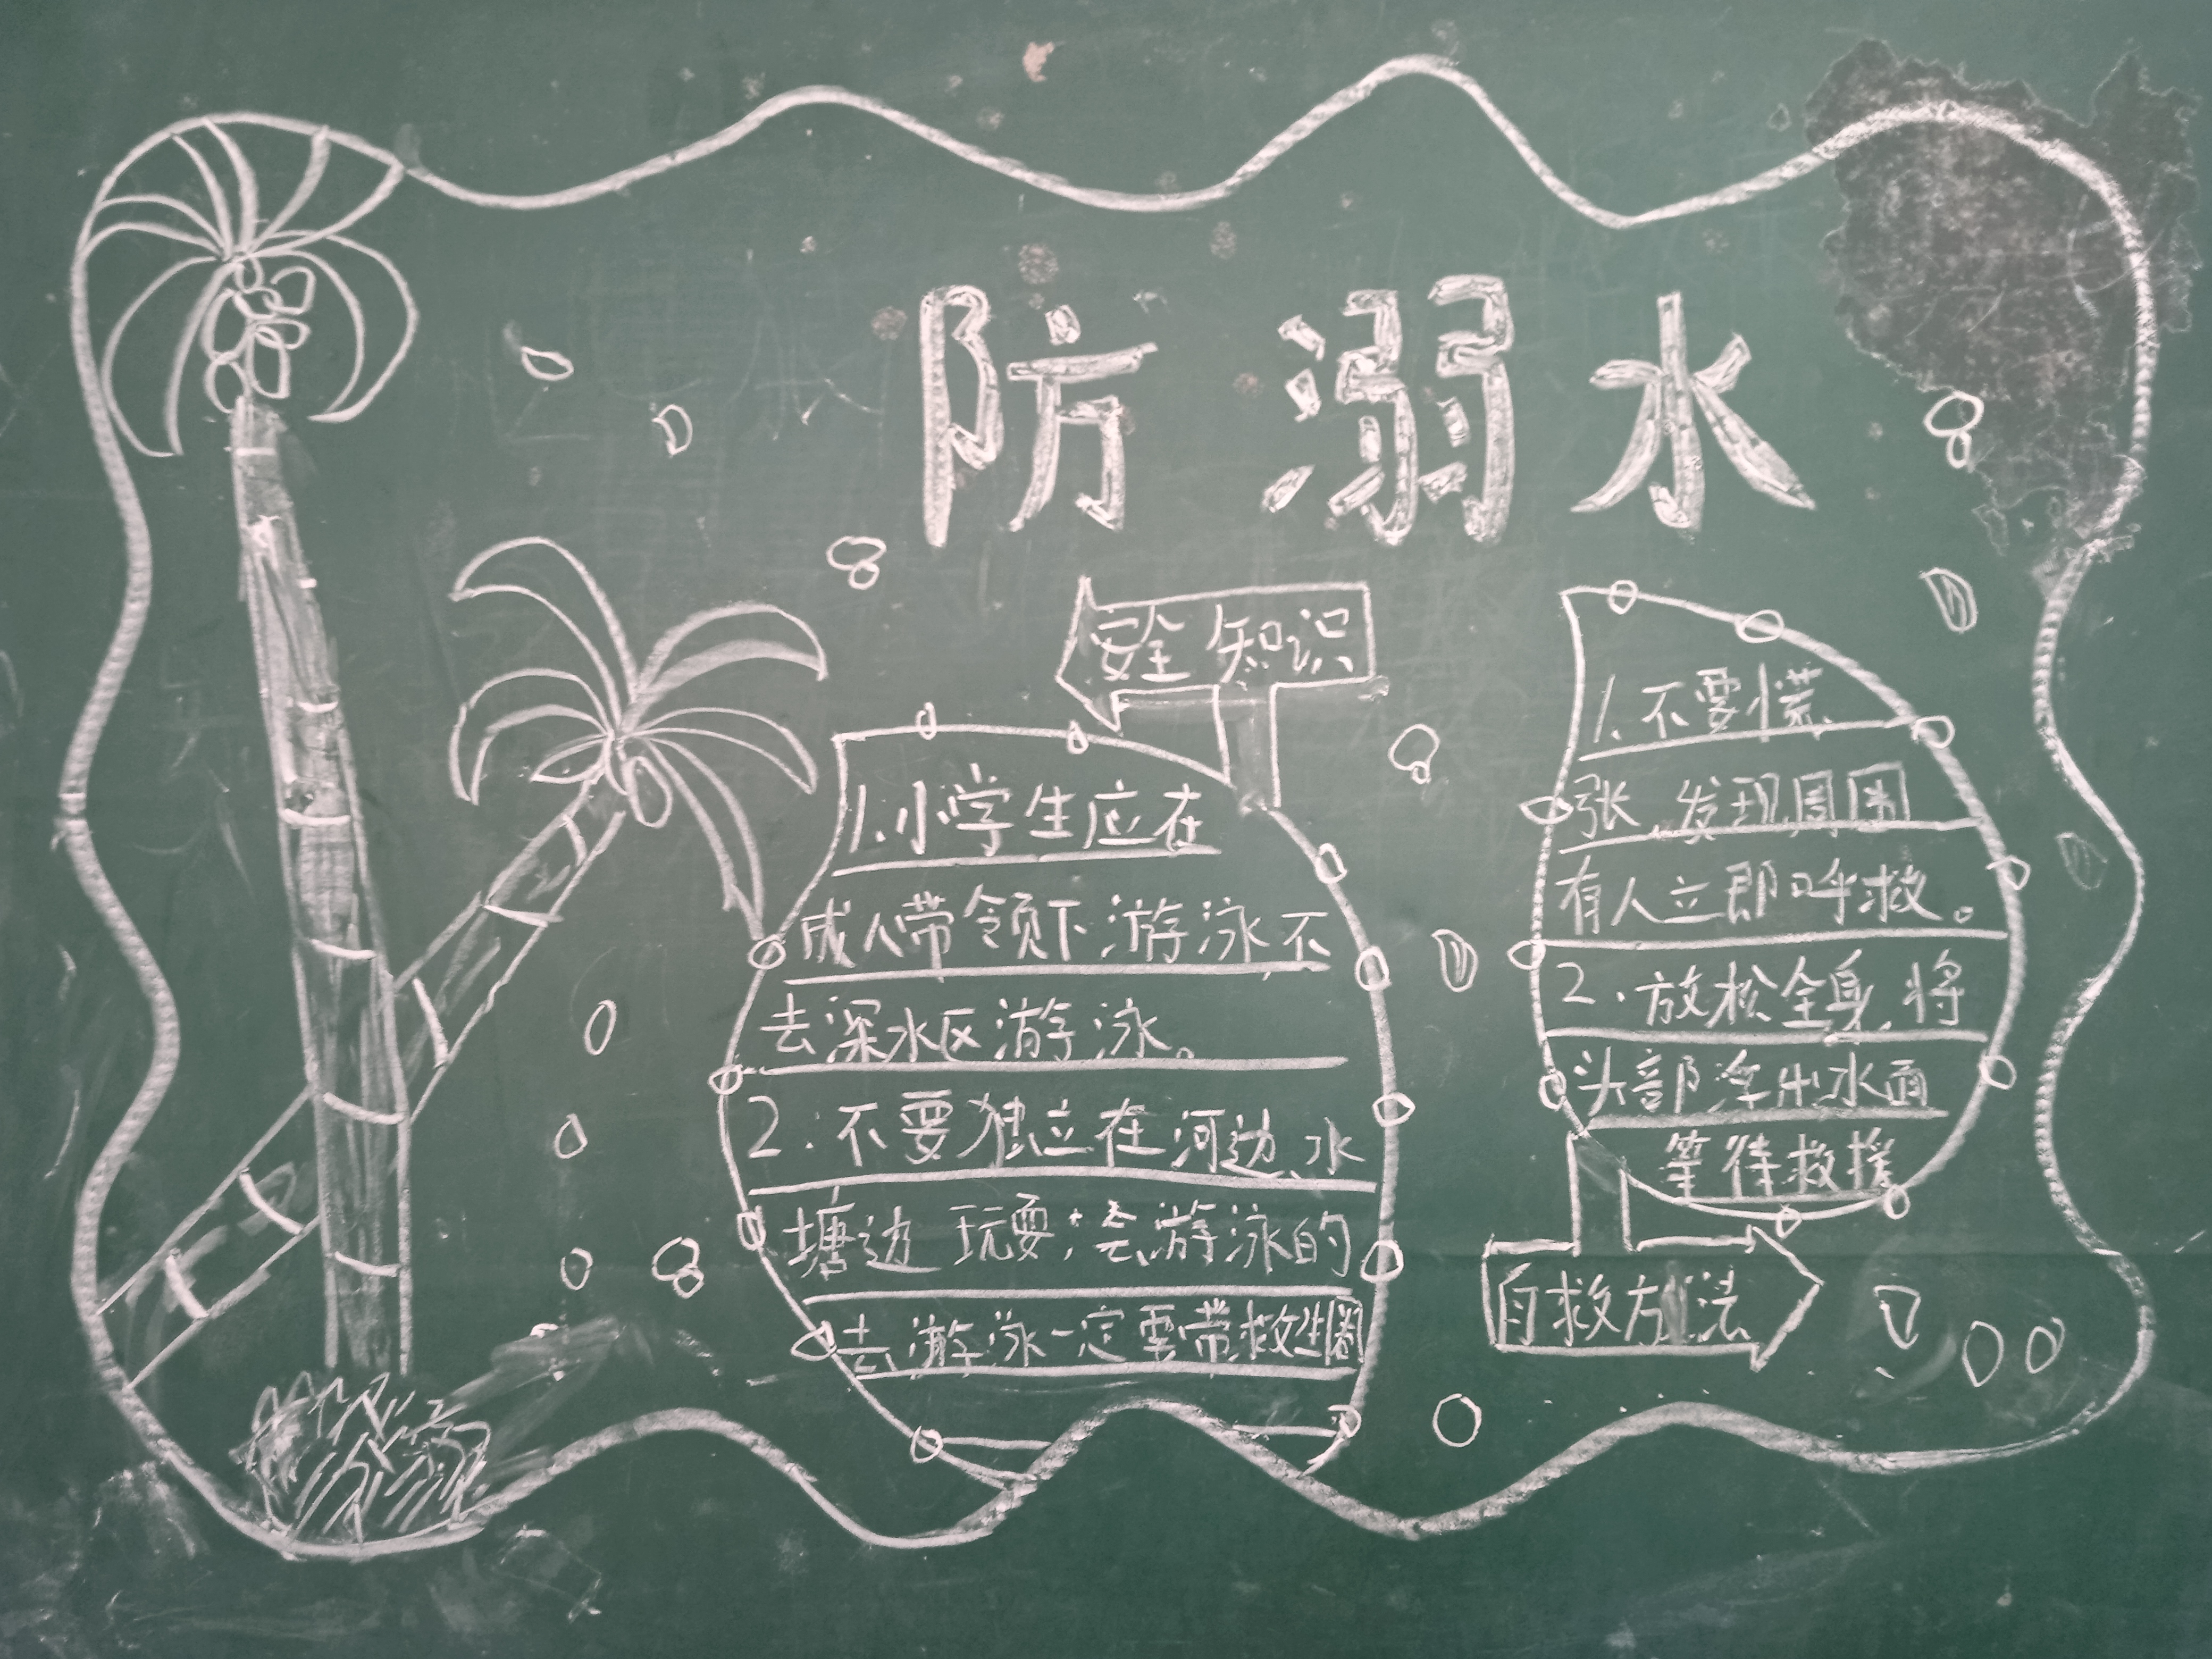 防溺水
安全知识
1.小学生应在
成人带领下游泳,不
去深水区游泳。
2.不要独立在河边、水
塘边玩耍,会游泳的
去游泳一定要带救生圈
1.不要慌
张,发现周围
有人立即呼救。
2.放松全身,将
头部浮出水面
等待救援
自救方法